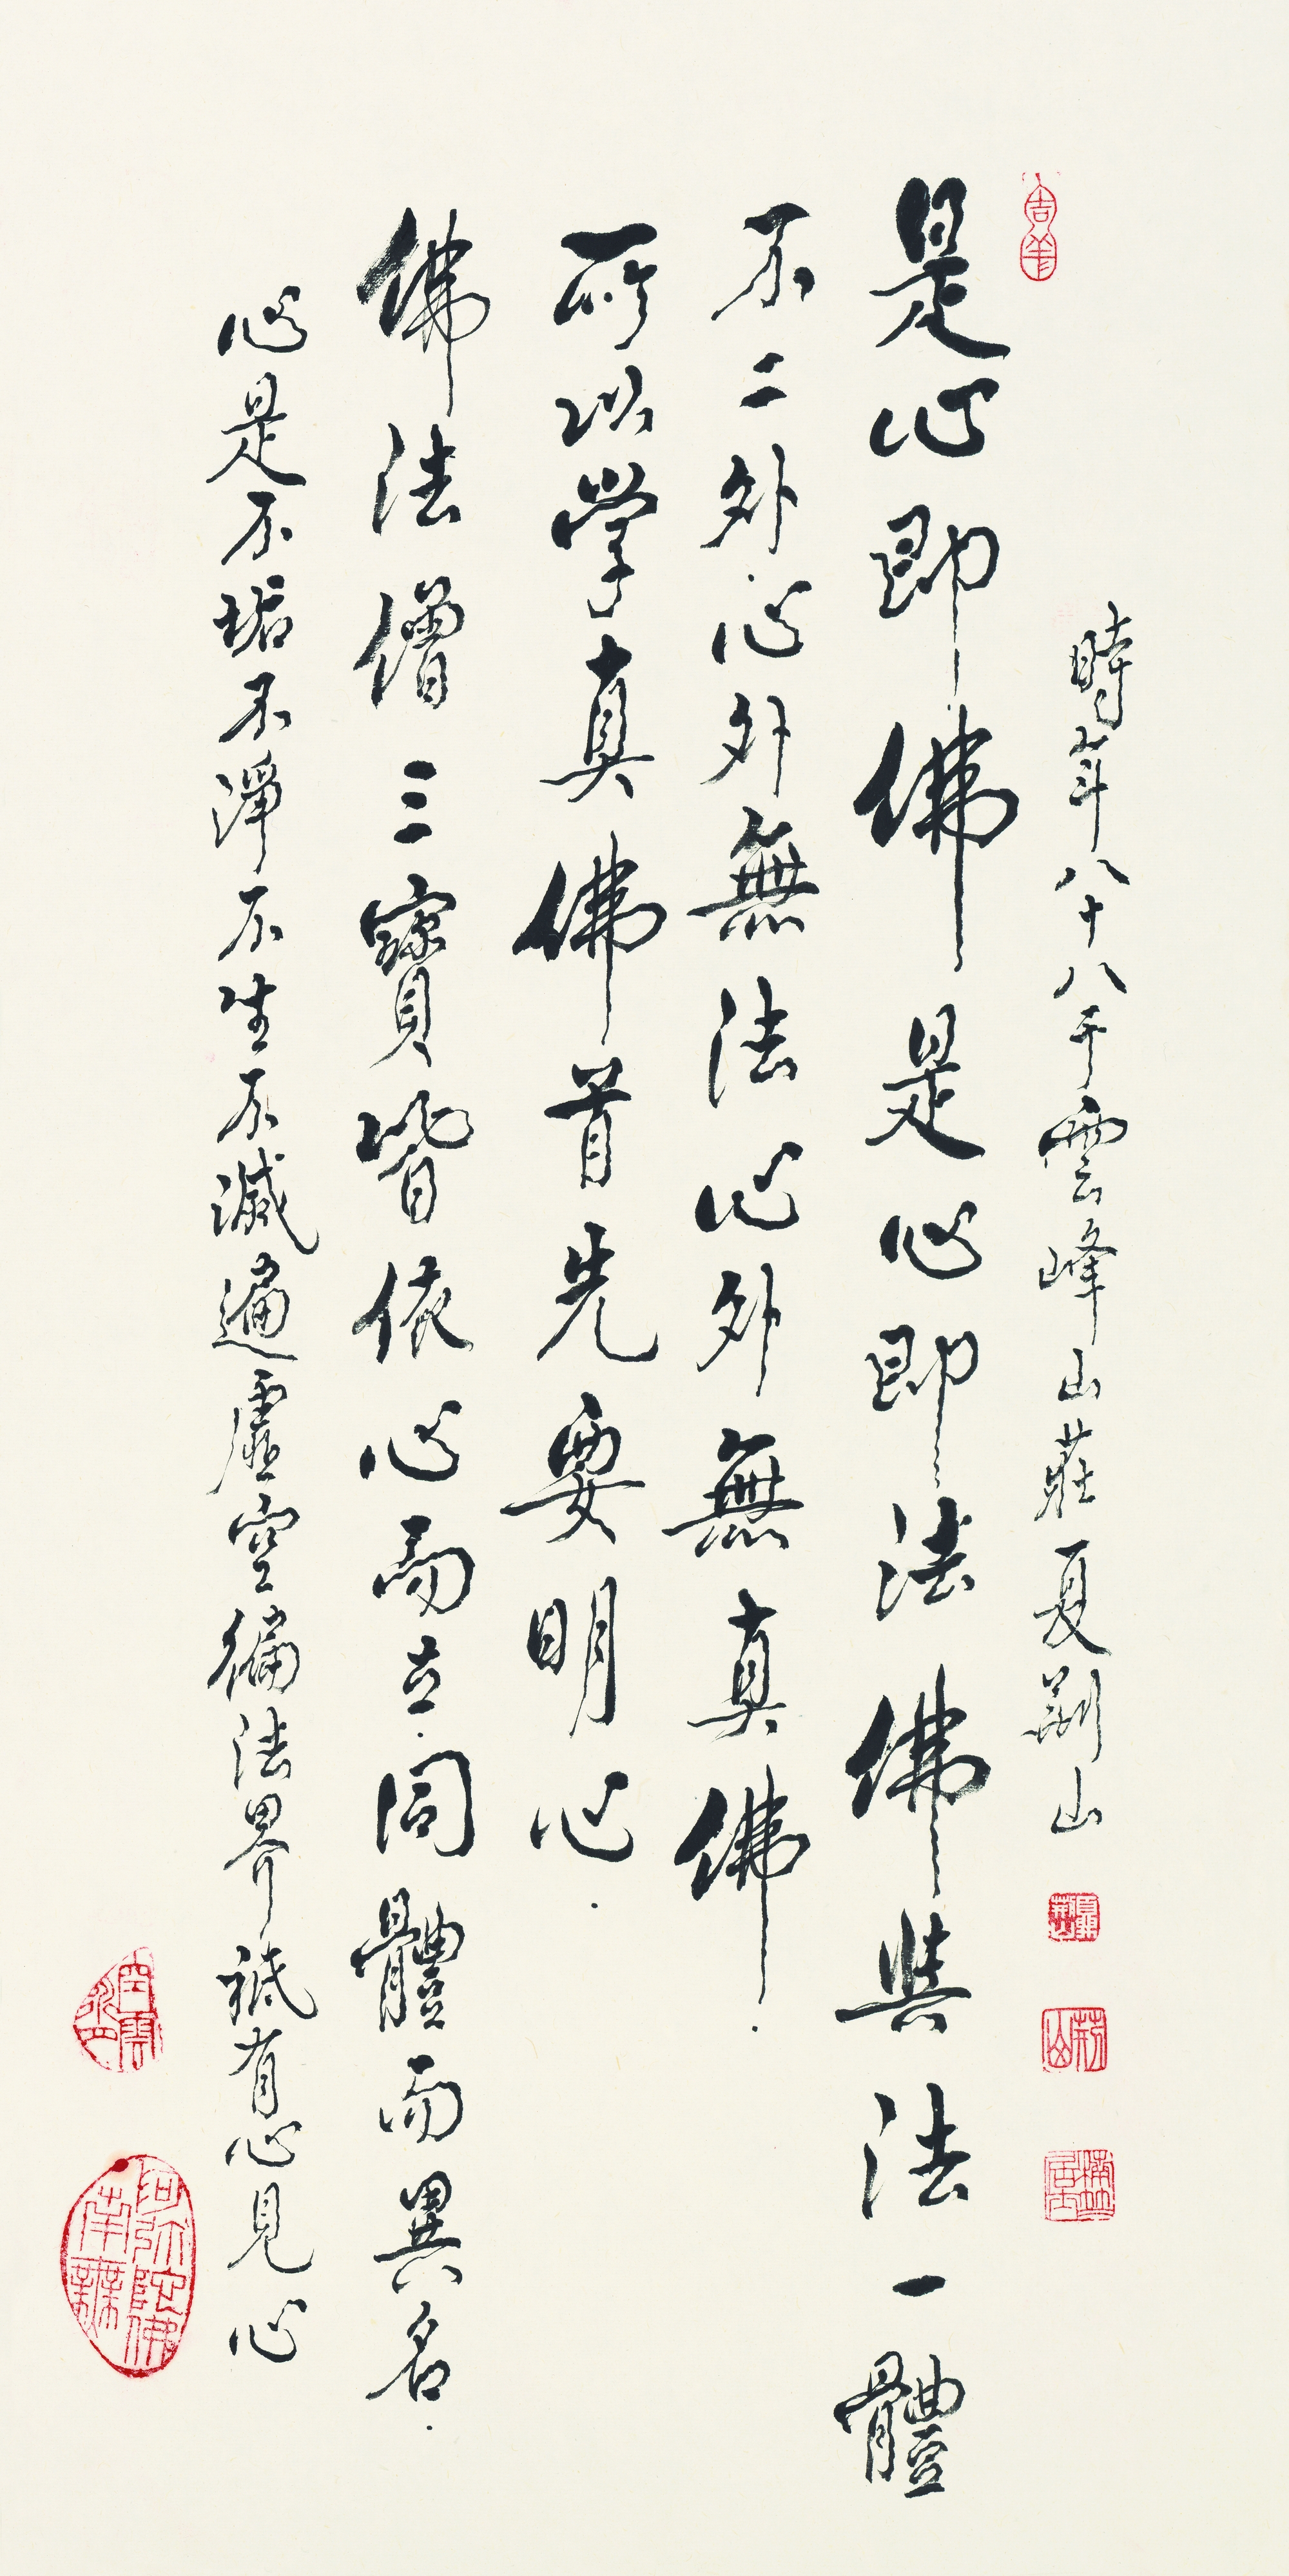 吉羊
時年八十八于雲峰山莊夏荊山
荊山
是心即佛是心即法佛與法一體
不二外心外無法心外無真佛.
所以學真佛首先要明心.
佛法僧三寶皆依心而立.同體而異名.
心是不垢不淨不生不滅遍虛空徧法界祇有心見心
南無阿彌陀佛